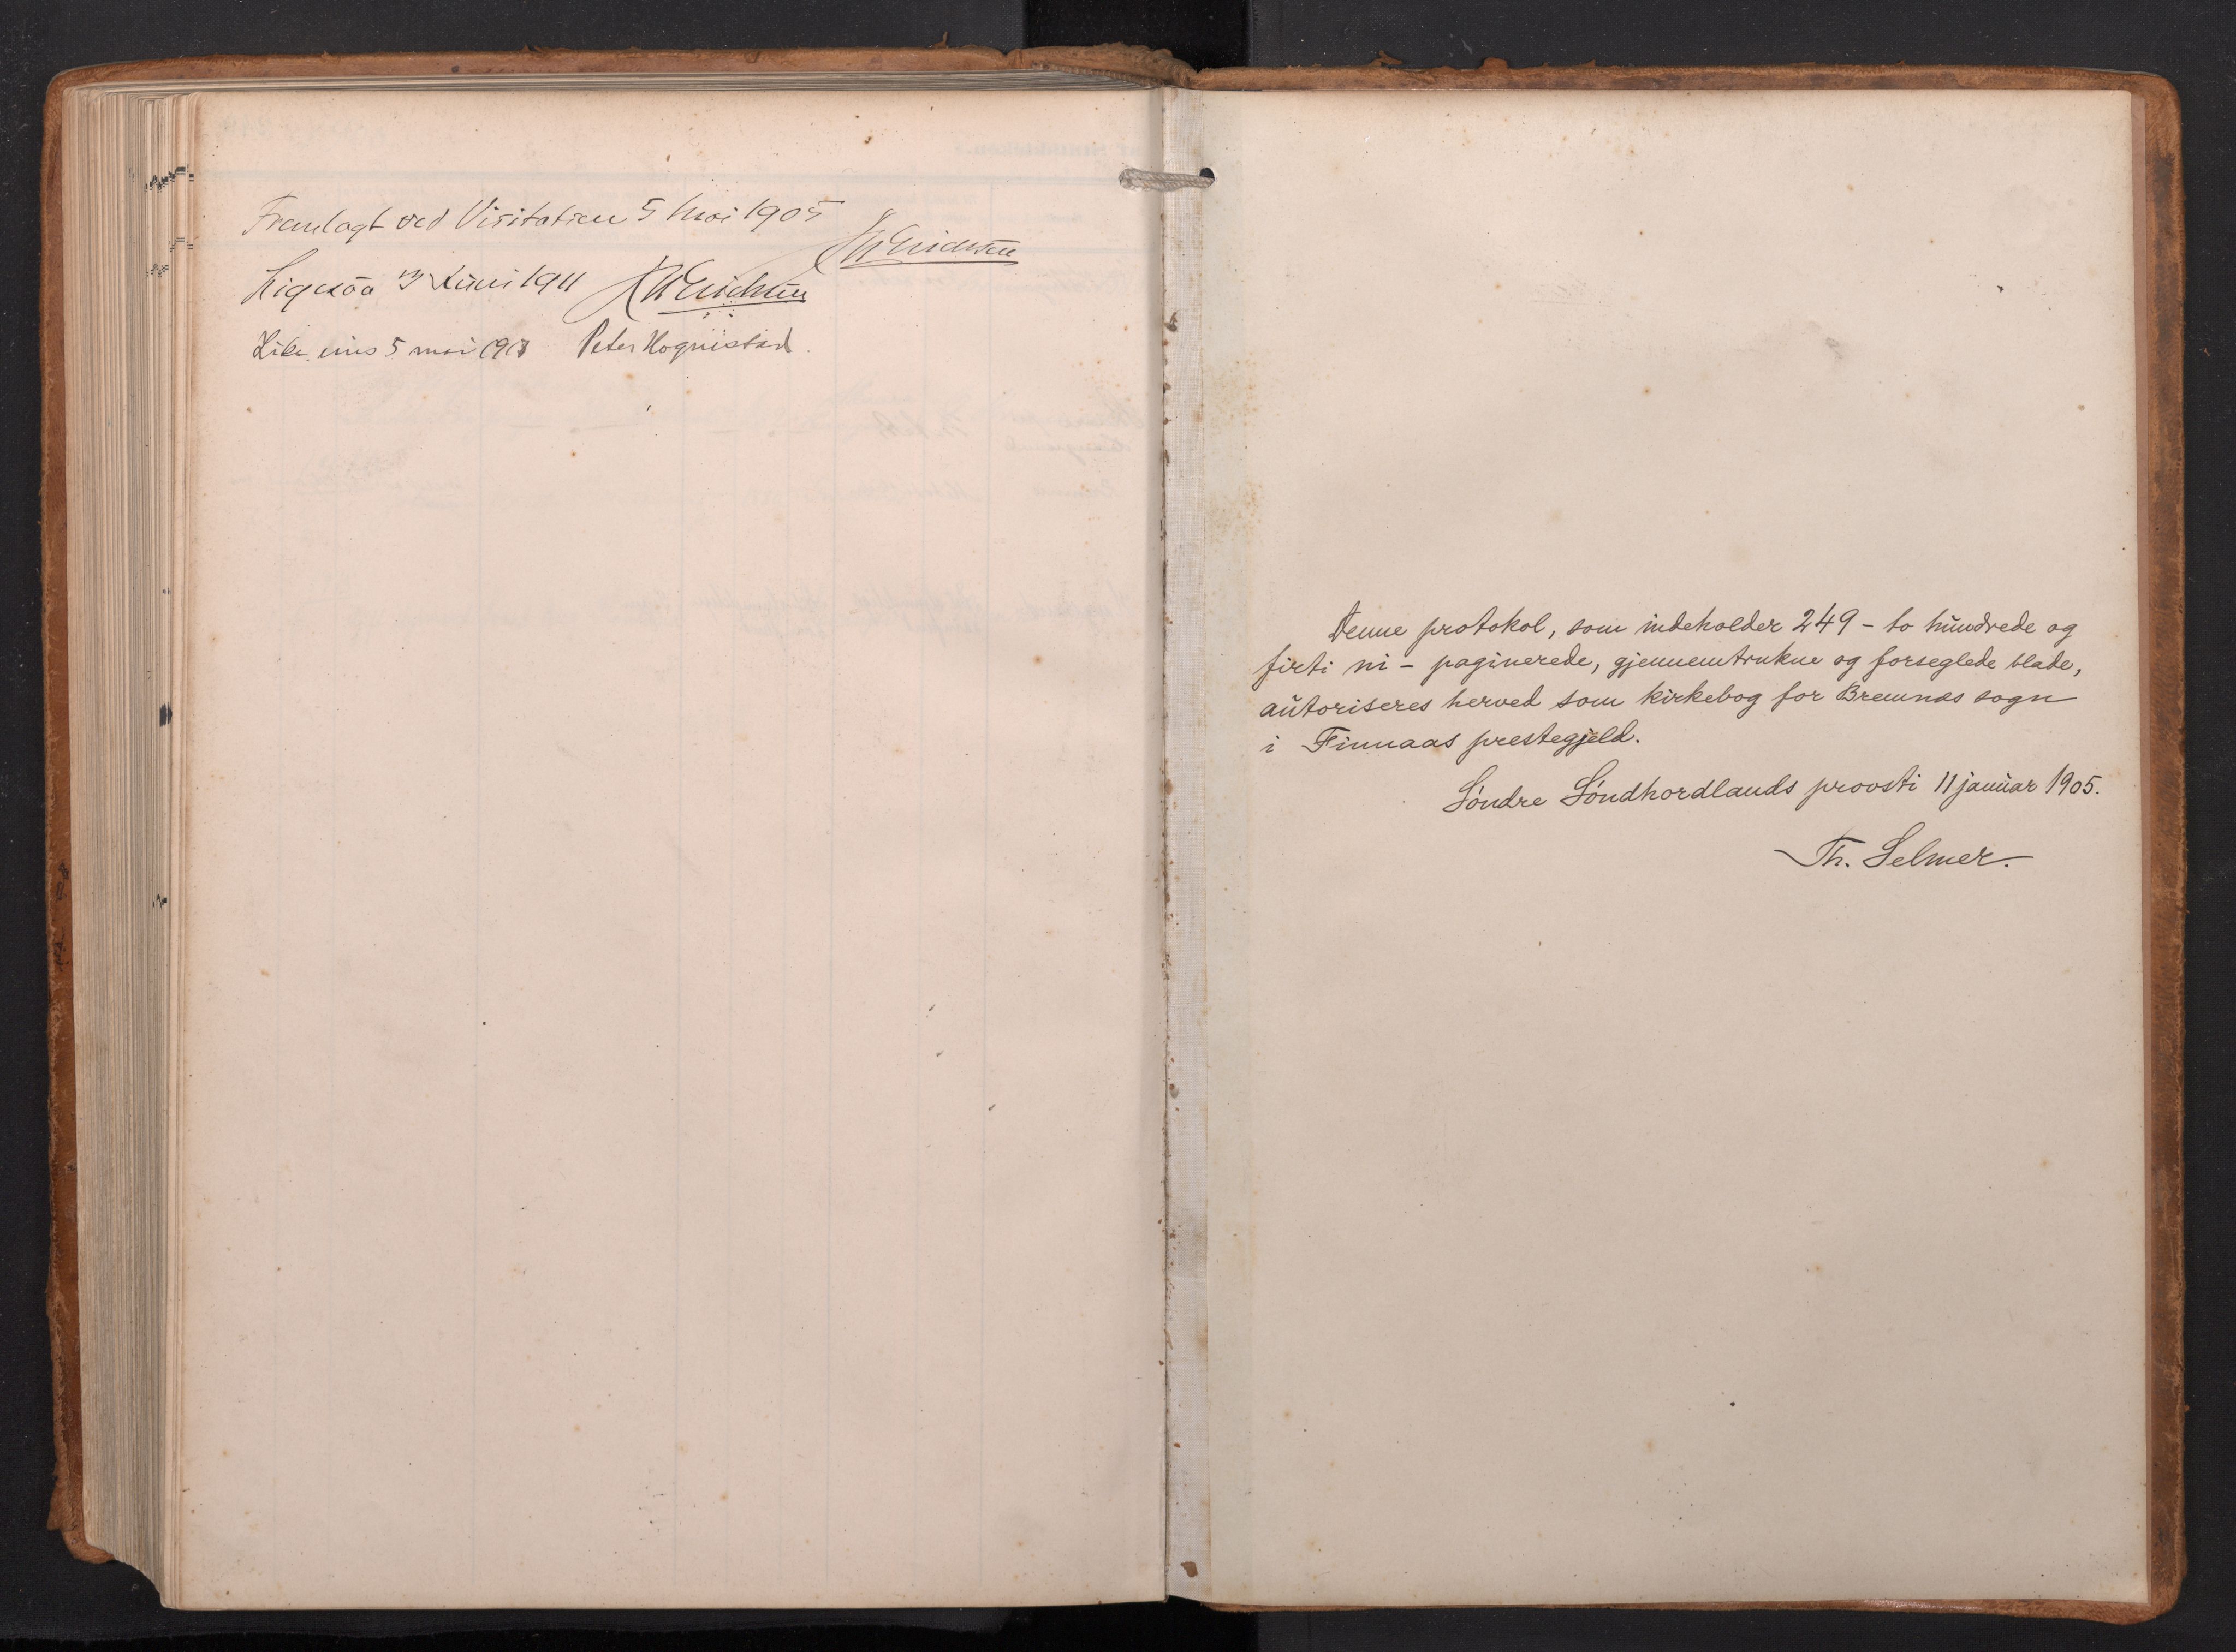 Fremlagt ved Visitatien 5 Mai 1905
JWErichsen
Ligesaa 3 Juni 1911 JWErichsen
Like eins 5 mai 1918 Peter Hognestad.
Denne protokol, som indeholder 249 – to hundrede og
firti ni – paginerede, gjennemtrukne og forseglede blade,
autoriseres herved som kirkebog for Bremnæs sogn
i Finnaas prestegjeld.
Søndre Søndhordlands provsti 11 januar 1905.
Th. Selmer.